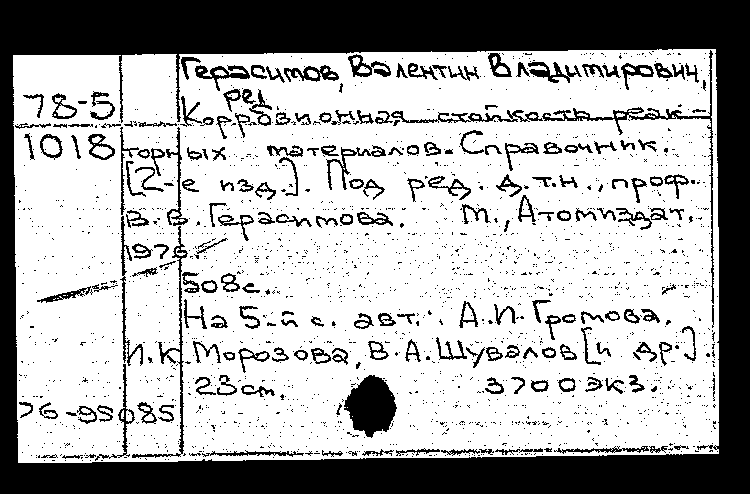 Герасимов, Валентин Владимирович,
ред.
78-5 Коррозионная стойкость реак-
1018 торных материалов. Справочник.
[2-е изд.]. Под ред. д.т.н., проф.
В.В. Герасимова. М., Атомиздат,
1976.
508 с.
На 5-й с. авт.: А.И. Громова,
И.К. Морозова, В.А. Шувалов [и др.].
23 см. 3700 экз.
76-95085